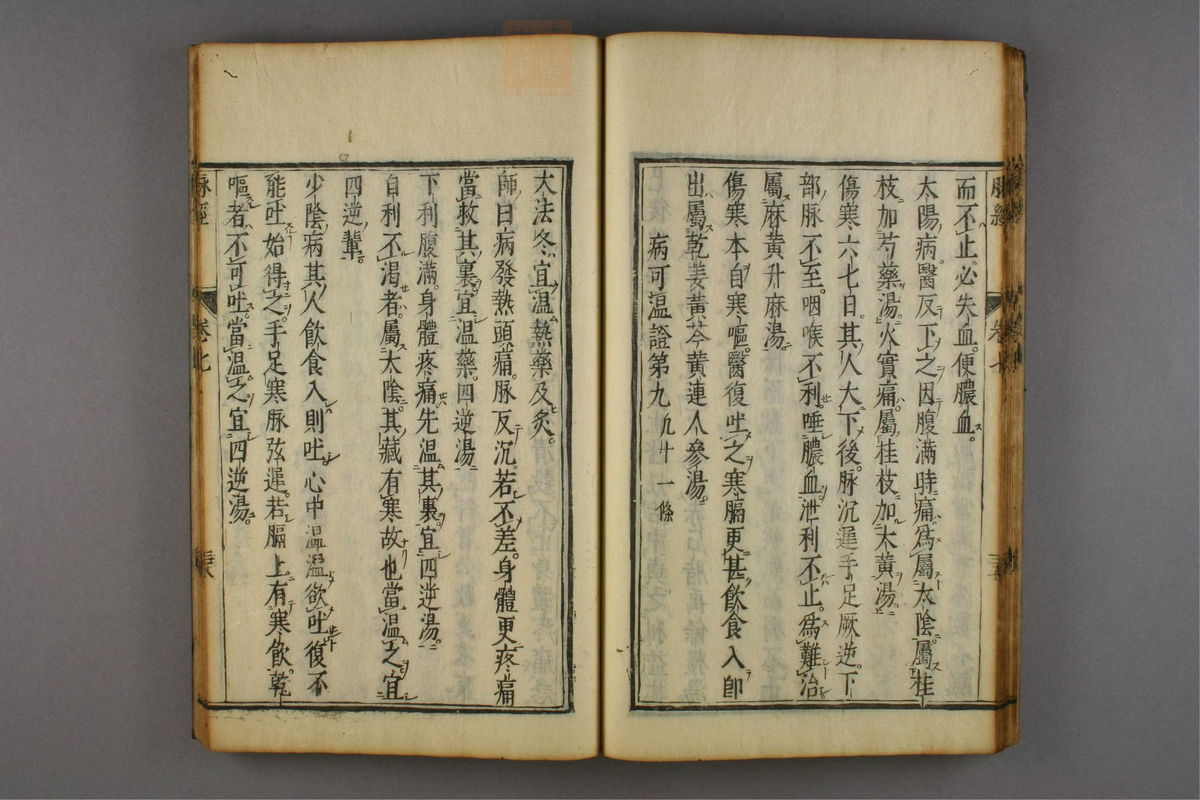 脉經
卷七
而不止必失血便膿血
太陽病醫反下之因腹滿時痛爲屬太陰屬桂
枝加芍藥湯火實痛屬桂枝加大黃湯
傷寒六七日其人大下後脉沉遲手足厥逆下
部脉不至咽喉不利唾膿血泄利不止爲難治
屬麻黃升麻湯
傷寒本自寒嘔醫復吐之寒膈更甚飲食入卽
出屬乾姜黃芩黃連人參湯
病可溫證第九 凡十一條
大法冬宜溫熱藥及灸
師曰病發熱頭痛脉反沉若不差身體更疼痛
當救其裏宜溫藥四逆湯
下利腹滿身體疼痛先溫其裏宜四逆湯
自利不渴者屬太陰其藏有寒故也當溫之宜
四逆輩
少陰病其人飲食入則吐心中溫溫欲吐復不
能吐始得之手足寒脉弦遲若膈上有寒飲乾
嘔者不可吐當溫之宜四逆湯
脉經
卷七